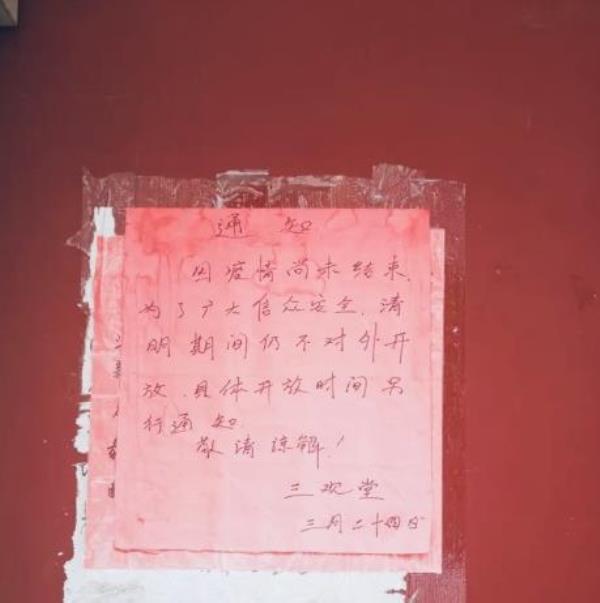 通知
因疫情尚未结束，
为了广大信众安全，清
明期间仍不对外开
放，具体开放时间另
行通知
敬请谅解！
三观堂
三月二十四日